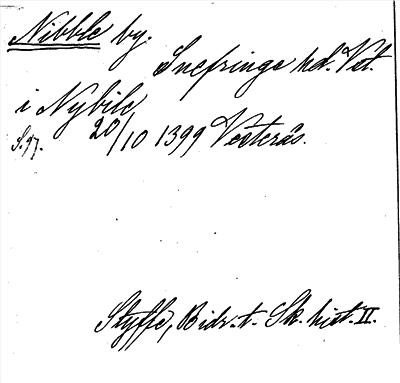 Nibble by.
Snefringe hd. Vst.
i Nybile
S. 97. 20/10 1399 Vesterås.
Styffe, Bidr. t. Sk. hist. II.